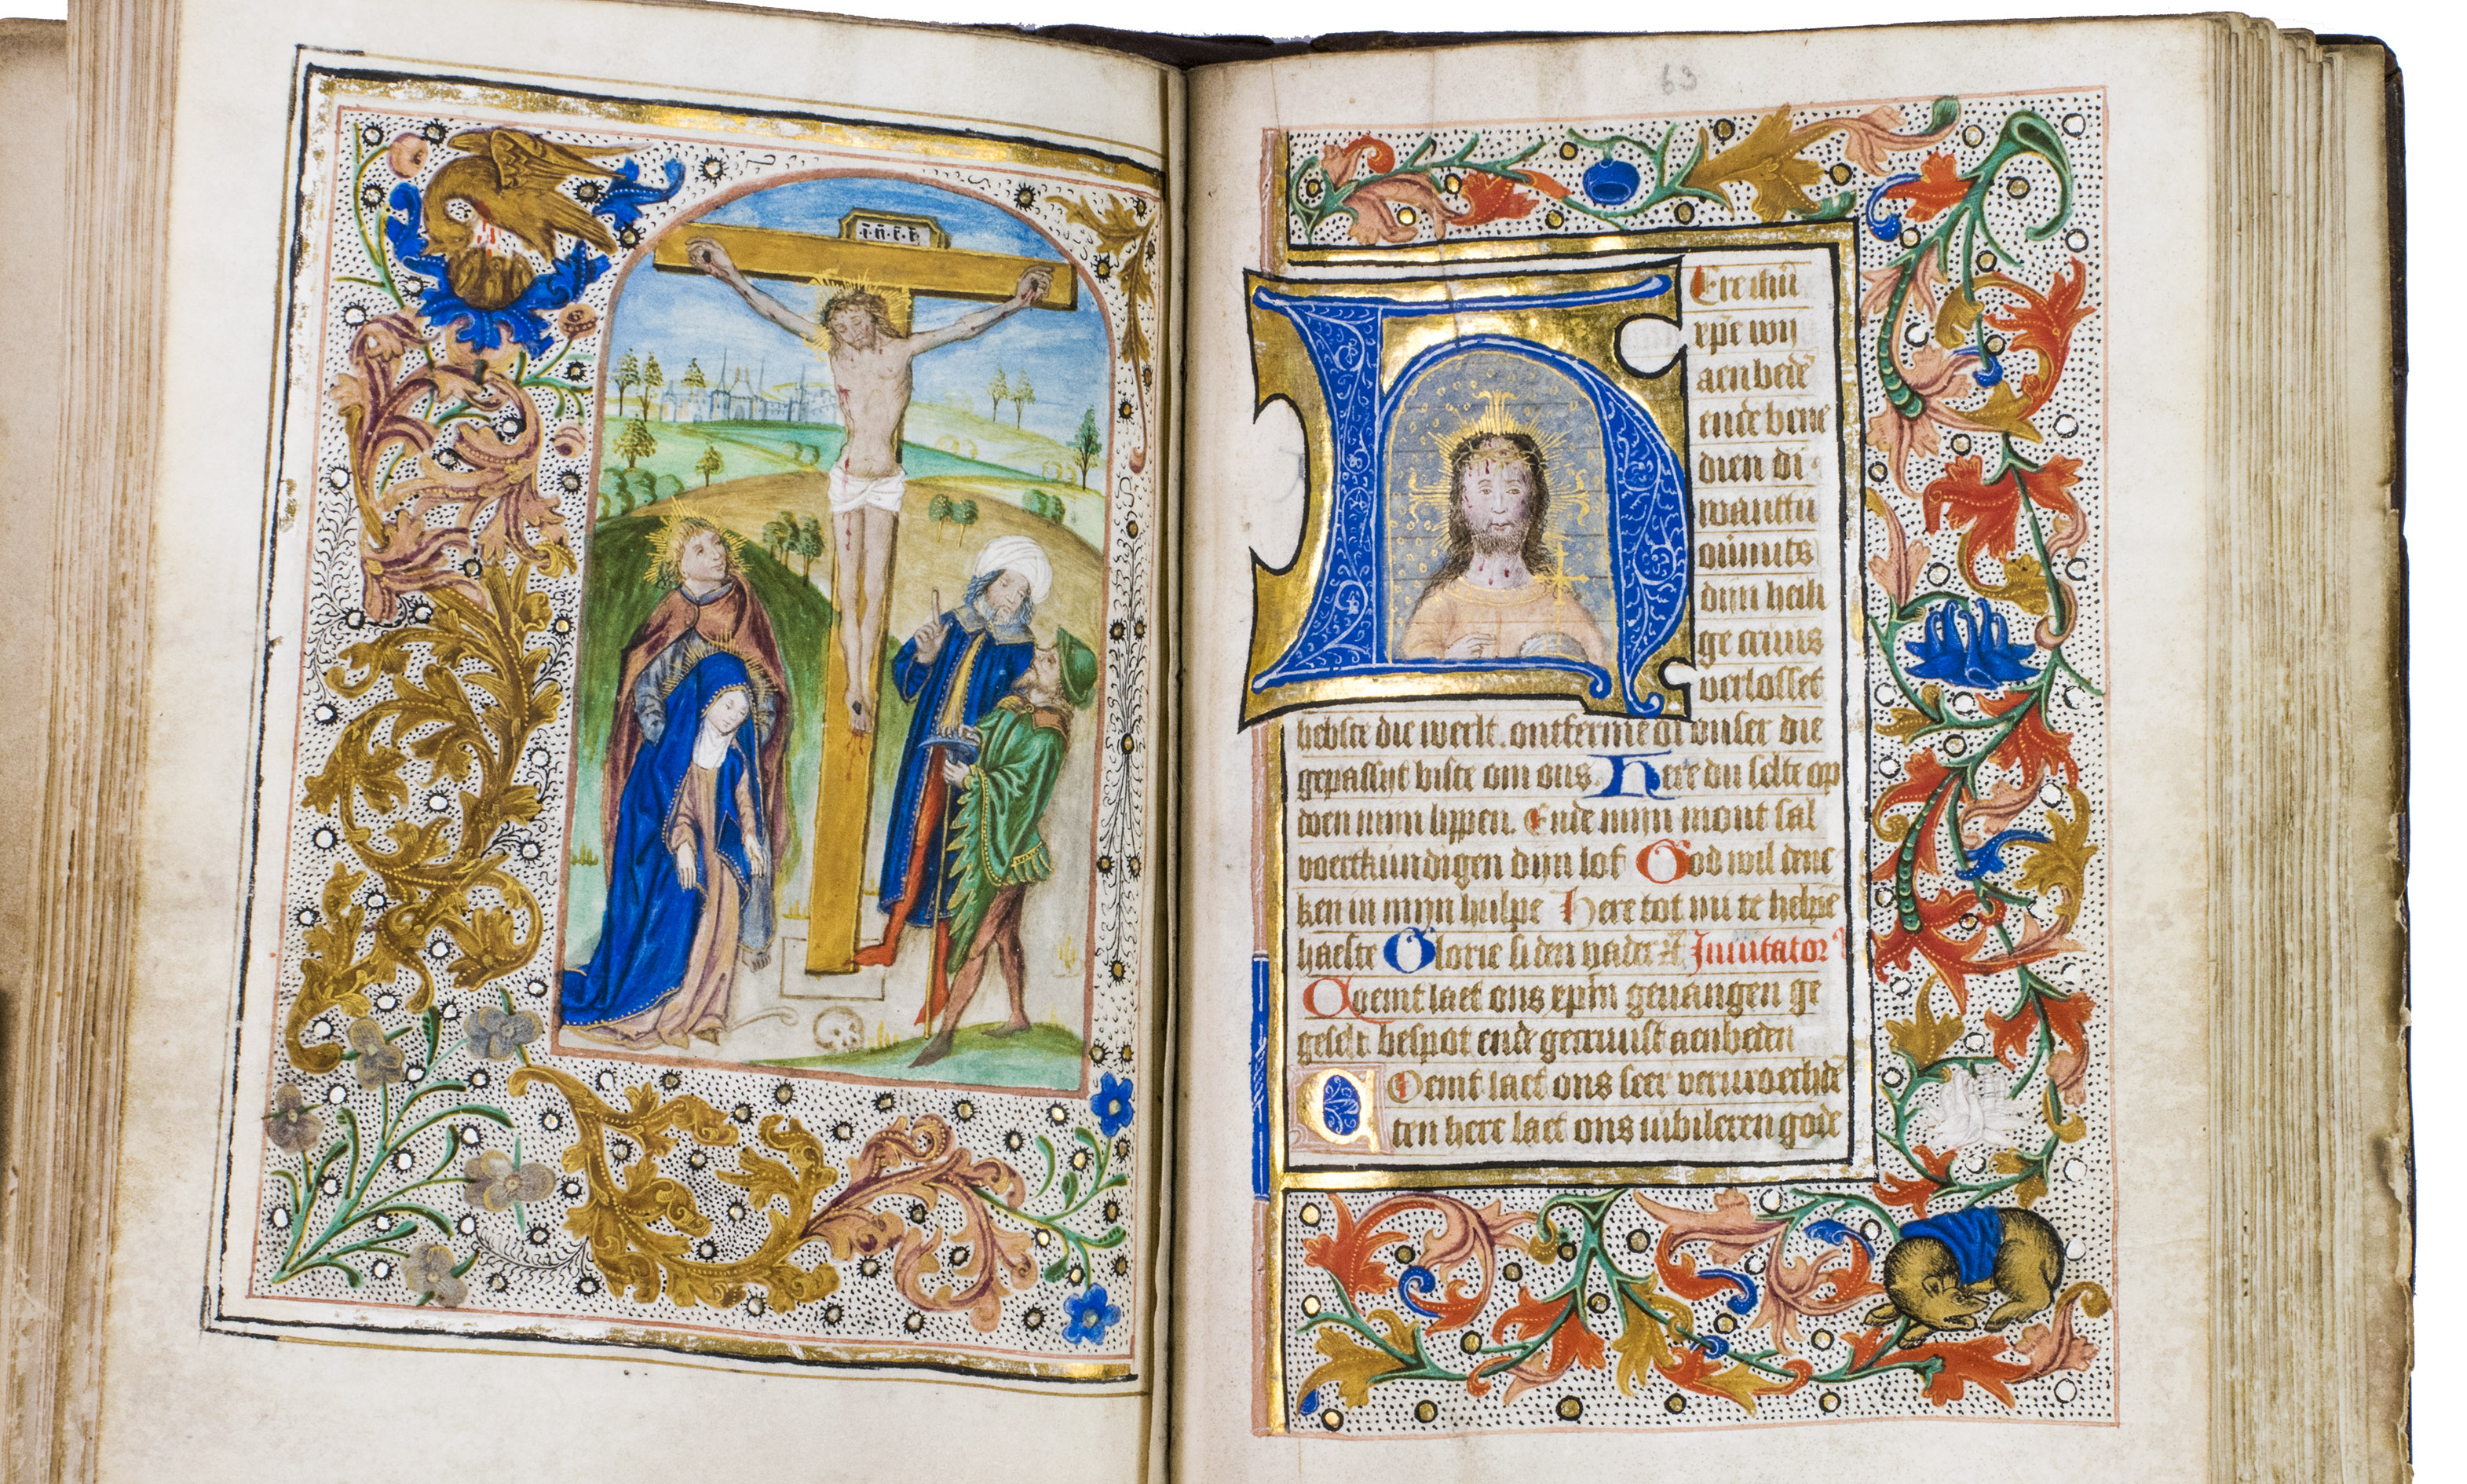 i·n·r·i
63
Ere ihū
xp̄e wij
aenbedē
ende bene
dien di
wanttu
ouermits
dijn heili
ge cruus
verlosset
hebste die werlt. ontferme di onser die
gepassijt biste om ons. Here du selte op
doen mijn lippen. Ende mijn mont sal
voertkundigen dijn lof God wil denc
ken in mijn hulpe Here tot mi te helpē
haeste Glorie si den vader Inuitator
Coemt laet ons xp̄m geuangen ge
geselt bespot ende gecruust aenbeden
Coemt laet ons seer veruroechdē
ten here laet ons iubileren gode